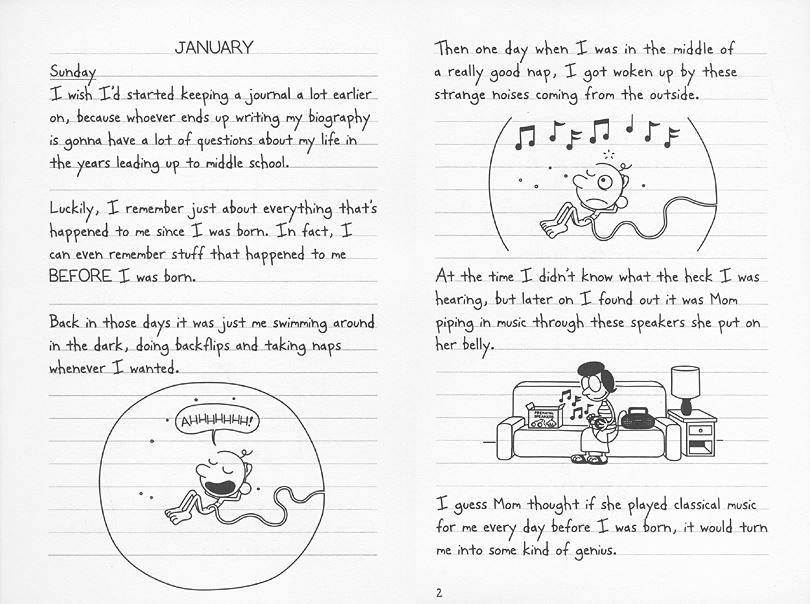 JANUARY
Sunday
I wish I'd started keeping a journal a lot earlier
on, because whoever ends up writing my biography
is gonna have a lot of questions about my life in
the years leading up to middle school.
Luckily, I remember just about everything that's
happened to me since I was born. In fact, I
can even remember stuff that happened to me
BEFORE I was born.
Back in those days it was just me swimming around
in the dark, doing backflips and taking naps
whenever I wanted.
AHHHHHHH!
Then one day when I was in the middle of
a really good nap, I got woken up by these
strange noises coming from the outside.
At the time I didn't know what the heck I was
hearing, but later on I found out it was Mom
piping in music through these speakers she put on
her belly.
PRENATAL
SPEAKERS
I guess Mom thought if she played classical music
for me every day before I was born, it would turn
me into some kind of genius.
2